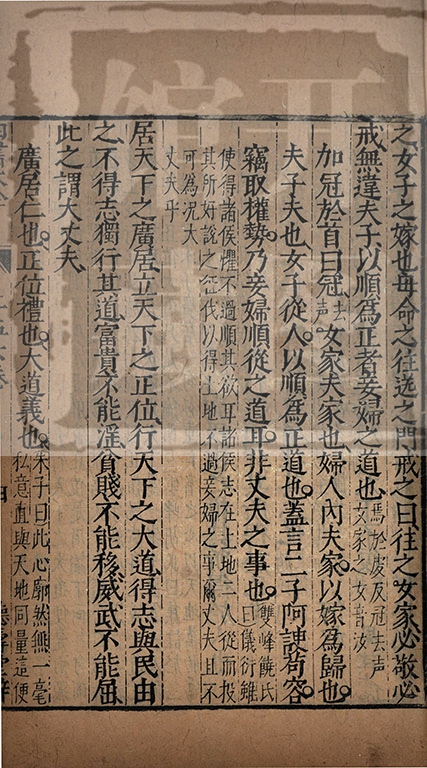 之女子之嫁也母命之往送之門戒之曰往之女家必敬必
戒無違夫子以順為正者妾婦之道也焉於虔反冠去声
女家之女音汝
加冠於首曰冠去声女家夫家也婦人内夫家以嫁為歸也
夫子夫也女子從人以順為正道也蓋言二子阿諛苟容
竊取權勢乃妾婦順從之道耳非丈夫之事也雙峰饒氏
曰儀衍雖
使得諸侯懼不過順其欲耳諸侯志在土地二人從而投
其所好說之征伐以得土地不過妾婦之事爾丈夫且不
可為况大
丈夫乎
居天下之廣居立天下之正位行天下之大道得志與民由
之不得志獨行其道富貴不能淫貧賤不能移威武不能屈
此之謂大丈夫
廣居仁也正位禮也大道義也朱子曰此心廓然無一毫
私意直與天地同量這便